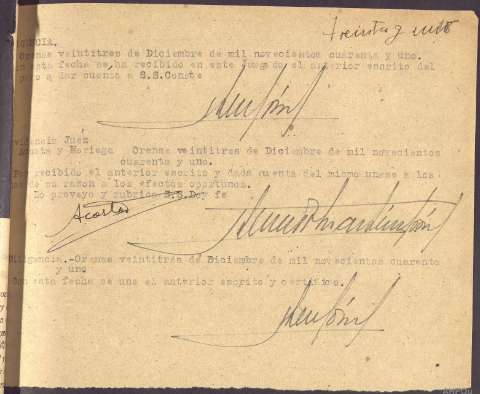 treinta y
ENCIA.
Orense veintitres de Diciembre de mil novecientos cuarenta y uno.
en esta fecha se ha recibido en este juzgado el anterior escrito del
paso a dar cuenta a S.S.Conste
videncia Juez
Acosta y Noriega Orense veintitres de Diciembre de mil novecientos
cuarenta y uno.
Por recibido el anterior escrito y dada cuenta del mismo unase a los
de su razon a los efectos oportunos.
Lo proveyo y rubrica S.S.Doy fe
Acosta
Diligencia.-Orense veintitres de Diciembre de mil novecientos cuarenta
y uno
Con esta fecha se une el anterior escrito y certifico.